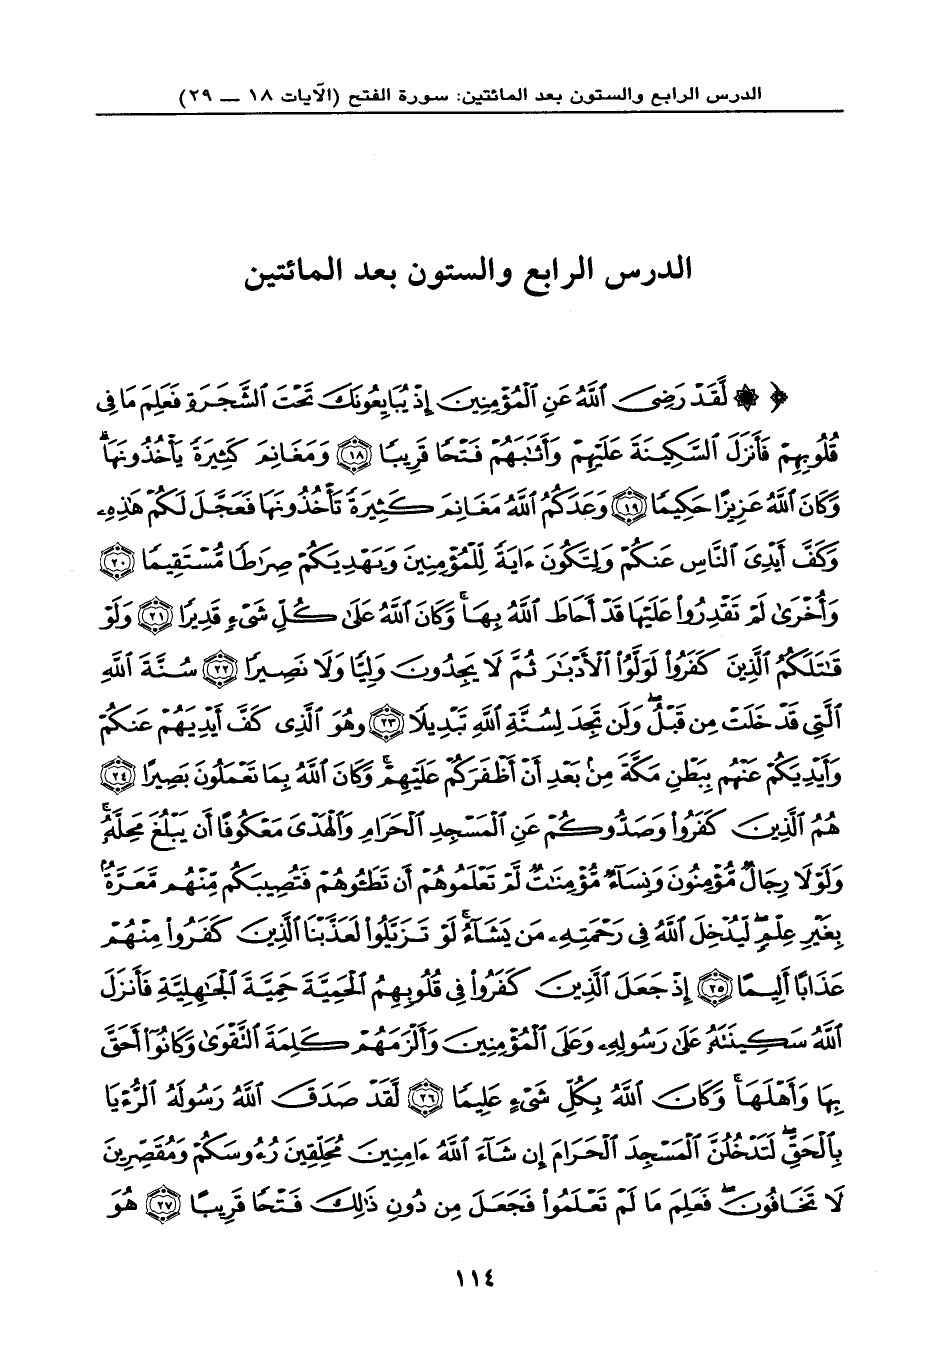 الدرس الرابع والستون بعد المائتين: سورة الفتح (الآيات ١٨ ــ ٢٩)
الدرس الرابع والستون بعد المائتين
﴿ ۞ لَّقَدْ رَضِيَ ٱللَّهُ عَنِ ٱلْمُؤْمِنِينَ إِذْ يُبَايِعُونَكَ تَحْتَ ٱلشَّجَرَةِ فَعَلِمَ مَا فِى
قُلُوبِهِمْ فَأَنزَلَ ٱلسَّكِينَةَ عَلَيْهِمْ وَأَثَٰبَهُمْ فَتْحًا قَرِيبًا ﴿١٨﴾ وَمَغَانِمَ كَثِيرَةً يَأْخُذُونَهَا ۗ
وَكَانَ ٱللَّهُ عَزِيزًا حَكِيمًا ﴿١٩﴾ وَعَدَكُمُ ٱللَّهُ مَغَانِمَ كَثِيرَةً تَأْخُذُونَهَا فَعَجَّلَ لَكُمْ هَٰذِهِۦ
وَكَفَّ أَيْدِىَ ٱلنَّاسِ عَنكُمْ وَلِتَكُونَ ءَايَةً لِّلْمُؤْمِنِينَ وَيَهْدِيَكُمْ صِرَٰطًا مُّسْتَقِيمًا ﴿٢٠﴾
وَأُخْرَىٰ لَمْ تَقْدِرُوا۟ عَلَيْهَا قَدْ أَحَاطَ ٱللَّهُ بِهَا ۚ وَكَانَ ٱللَّهُ عَلَىٰ كُلِّ شَىْءٍ قَدِيرًا ﴿٢١﴾ وَلَوْ
قَٰتَلَكُمُ ٱلَّذِينَ كَفَرُوا۟ لَوَلَّوُا۟ ٱلْأَدْبَٰرَ ثُمَّ لَا يَجِدُونَ وَلِيًّا وَلَا نَصِيرًا ﴿٢٢﴾ سُنَّةَ ٱللَّهِ
ٱلَّتِى قَدْ خَلَتْ مِن قَبْلُ ۖ وَلَن تَجِدَ لِسُنَّةِ ٱللَّهِ تَبْدِيلًا ﴿٢٣﴾ وَهُوَ ٱلَّذِى كَفَّ أَيْدِيَهُمْ عَنكُمْ
وَأَيْدِيَكُمْ عَنْهُم بِبَطْنِ مَكَّةَ مِنۢ بَعْدِ أَنْ أَظْفَرَكُمْ عَلَيْهِمْ ۚ وَكَانَ ٱللَّهُ بِمَا تَعْمَلُونَ بَصِيرًا ﴿٢٤﴾
هُمُ ٱلَّذِينَ كَفَرُوا۟ وَصَدُّوكُمْ عَنِ ٱلْمَسْجِدِ ٱلْحَرَامِ وَٱلْهَدْىَ مَعْكُوفًا أَن يَبْلُغَ مَحِلَّهُۥ ۚ
وَلَوْلَا رِجَالٌ مُّؤْمِنُونَ وَنِسَآءٌ مُّؤْمِنَٰتٌ لَّمْ تَعْلَمُوهُمْ أَن تَطَـُٔوهُمْ فَتُصِيبَكُم مِّنْهُم مَّعَرَّةٌۢ
بِغَيْرِ عِلْمٍ ۖ لِّيُدْخِلَ ٱللَّهُ فِى رَحْمَتِهِۦ مَن يَشَآءُ ۚ لَوْ تَزَيَّلُوا۟ لَعَذَّبْنَا ٱلَّذِينَ كَفَرُوا۟ مِنْهُمْ
عَذَابًا أَلِيمًا ﴿٢٥﴾ إِذْ جَعَلَ ٱلَّذِينَ كَفَرُوا۟ فِى قُلُوبِهِمُ ٱلْحَمِيَّةَ حَمِيَّةَ ٱلْجَٰهِلِيَّةِ فَأَنزَلَ
ٱللَّهُ سَكِينَتَهُۥ عَلَىٰ رَسُولِهِۦ وَعَلَى ٱلْمُؤْمِنِينَ وَأَلْزَمَهُمْ كَلِمَةَ ٱلتَّقْوَىٰ وَكَانُوٓا۟ أَحَقَّ
بِهَا وَأَهْلَهَا ۚ وَكَانَ ٱللَّهُ بِكُلِّ شَىْءٍ عَلِيمًا ﴿٢٦﴾ لَّقَدْ صَدَقَ ٱللَّهُ رَسُولَهُ ٱلرُّءْيَا
بِٱلْحَقِّ ۖ لَتَدْخُلُنَّ ٱلْمَسْجِدَ ٱلْحَرَامَ إِن شَآءَ ٱللَّهُ ءَامِنِينَ مُحَلِّقِينَ رُءُوسَكُمْ وَمُقَصِّرِينَ
لَا تَخَافُونَ ۖ فَعَلِمَ مَا لَمْ تَعْلَمُوا۟ فَجَعَلَ مِن دُونِ ذَٰلِكَ فَتْحًا قَرِيبًا ﴿٢٧﴾ هُوَ
١١٤